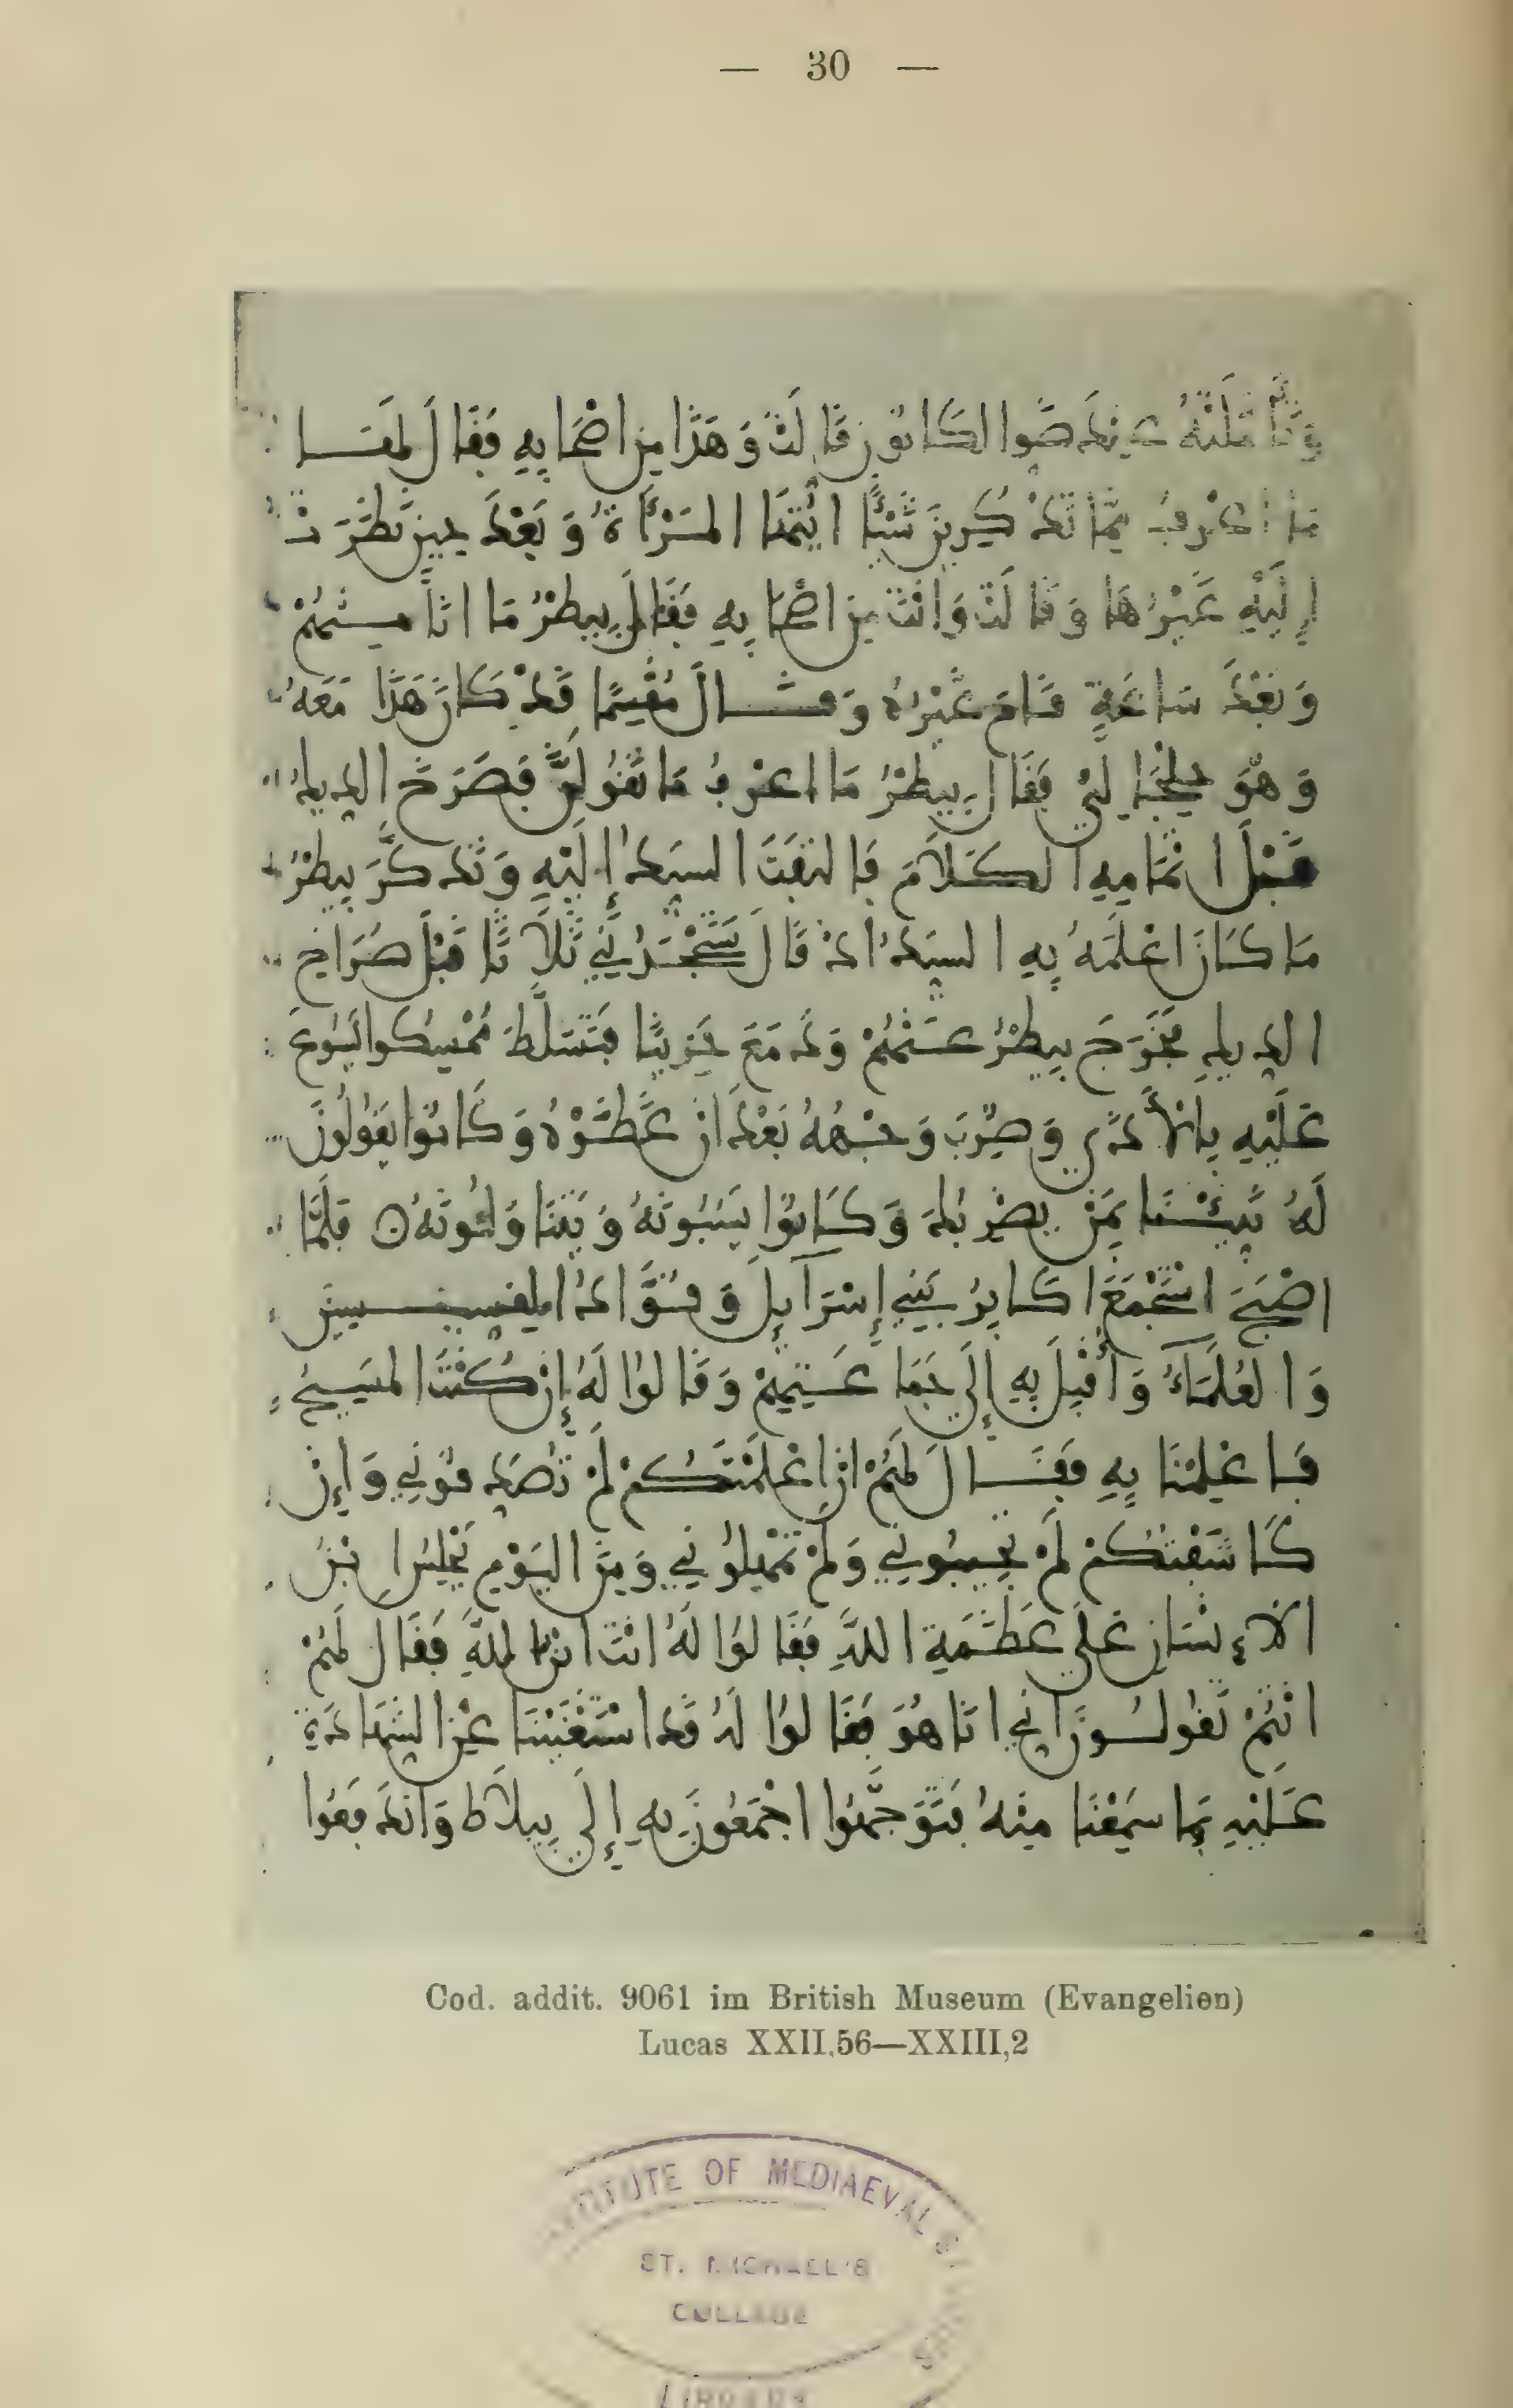 — 30 —
عند ضوا الكانون قالت وهذا من اصحابه فقال لها
ما اعرف مما تذكرين شيئا ايتها المرأة وبعد حين نظرت
إليه غيرها وقالت وانت من اصحابه فقال بيطر ما انا منهم
وبعد ساعة قام غيره وقال مقيما قد كان هذا معه
وهو جلجالي فقال بيطر ما اعرف ما تقول فصرخ الديك
قبل اتمامه الكلام فالتفت السيد إليه وتذكر بيطر
ما كان اعلمه به السيد اذ قال ستجحدني ثلاثا قبل صراخ
الديك فخرج بيطر عنهم ودمع حزينا فتسلط ممسكوا يسوع
عليه بالأذى وضرب وجهه بعد ان غطوه وكانوا يقولون
له نبئنا بمن يضربك وكانوا يسبونه فلما
اصبح استجمع اكابر بني إسرآيل وقواد القسيسين
والعلماء وأقبل به إلى جماعتهم وقالوا له إن كنت المسيح
فاعلمنا به فقال لهم ان اعلمتكم لم تصدقوني وإن
كاشفتكم لم تجيبوني ولم تميلوني ومن اليوم يجلس ابن
الانسان على عظمة الله فقالوا له انت ابن الله فقال لهم
انتم تقولون اني انا هو فقالوا له قد استغنينا عن الشهادة
عليه بما سمعنا منه فتوجهوا اجمعون به إلى بيلاط واندفعوا
Cod. addit. 9061 im British Museum (Evangelien)
Lucas XXII,56—XXIII,2
OF MEDIAEVAL
ST. MICHAEL'S
COLLEGE
LIBRARY